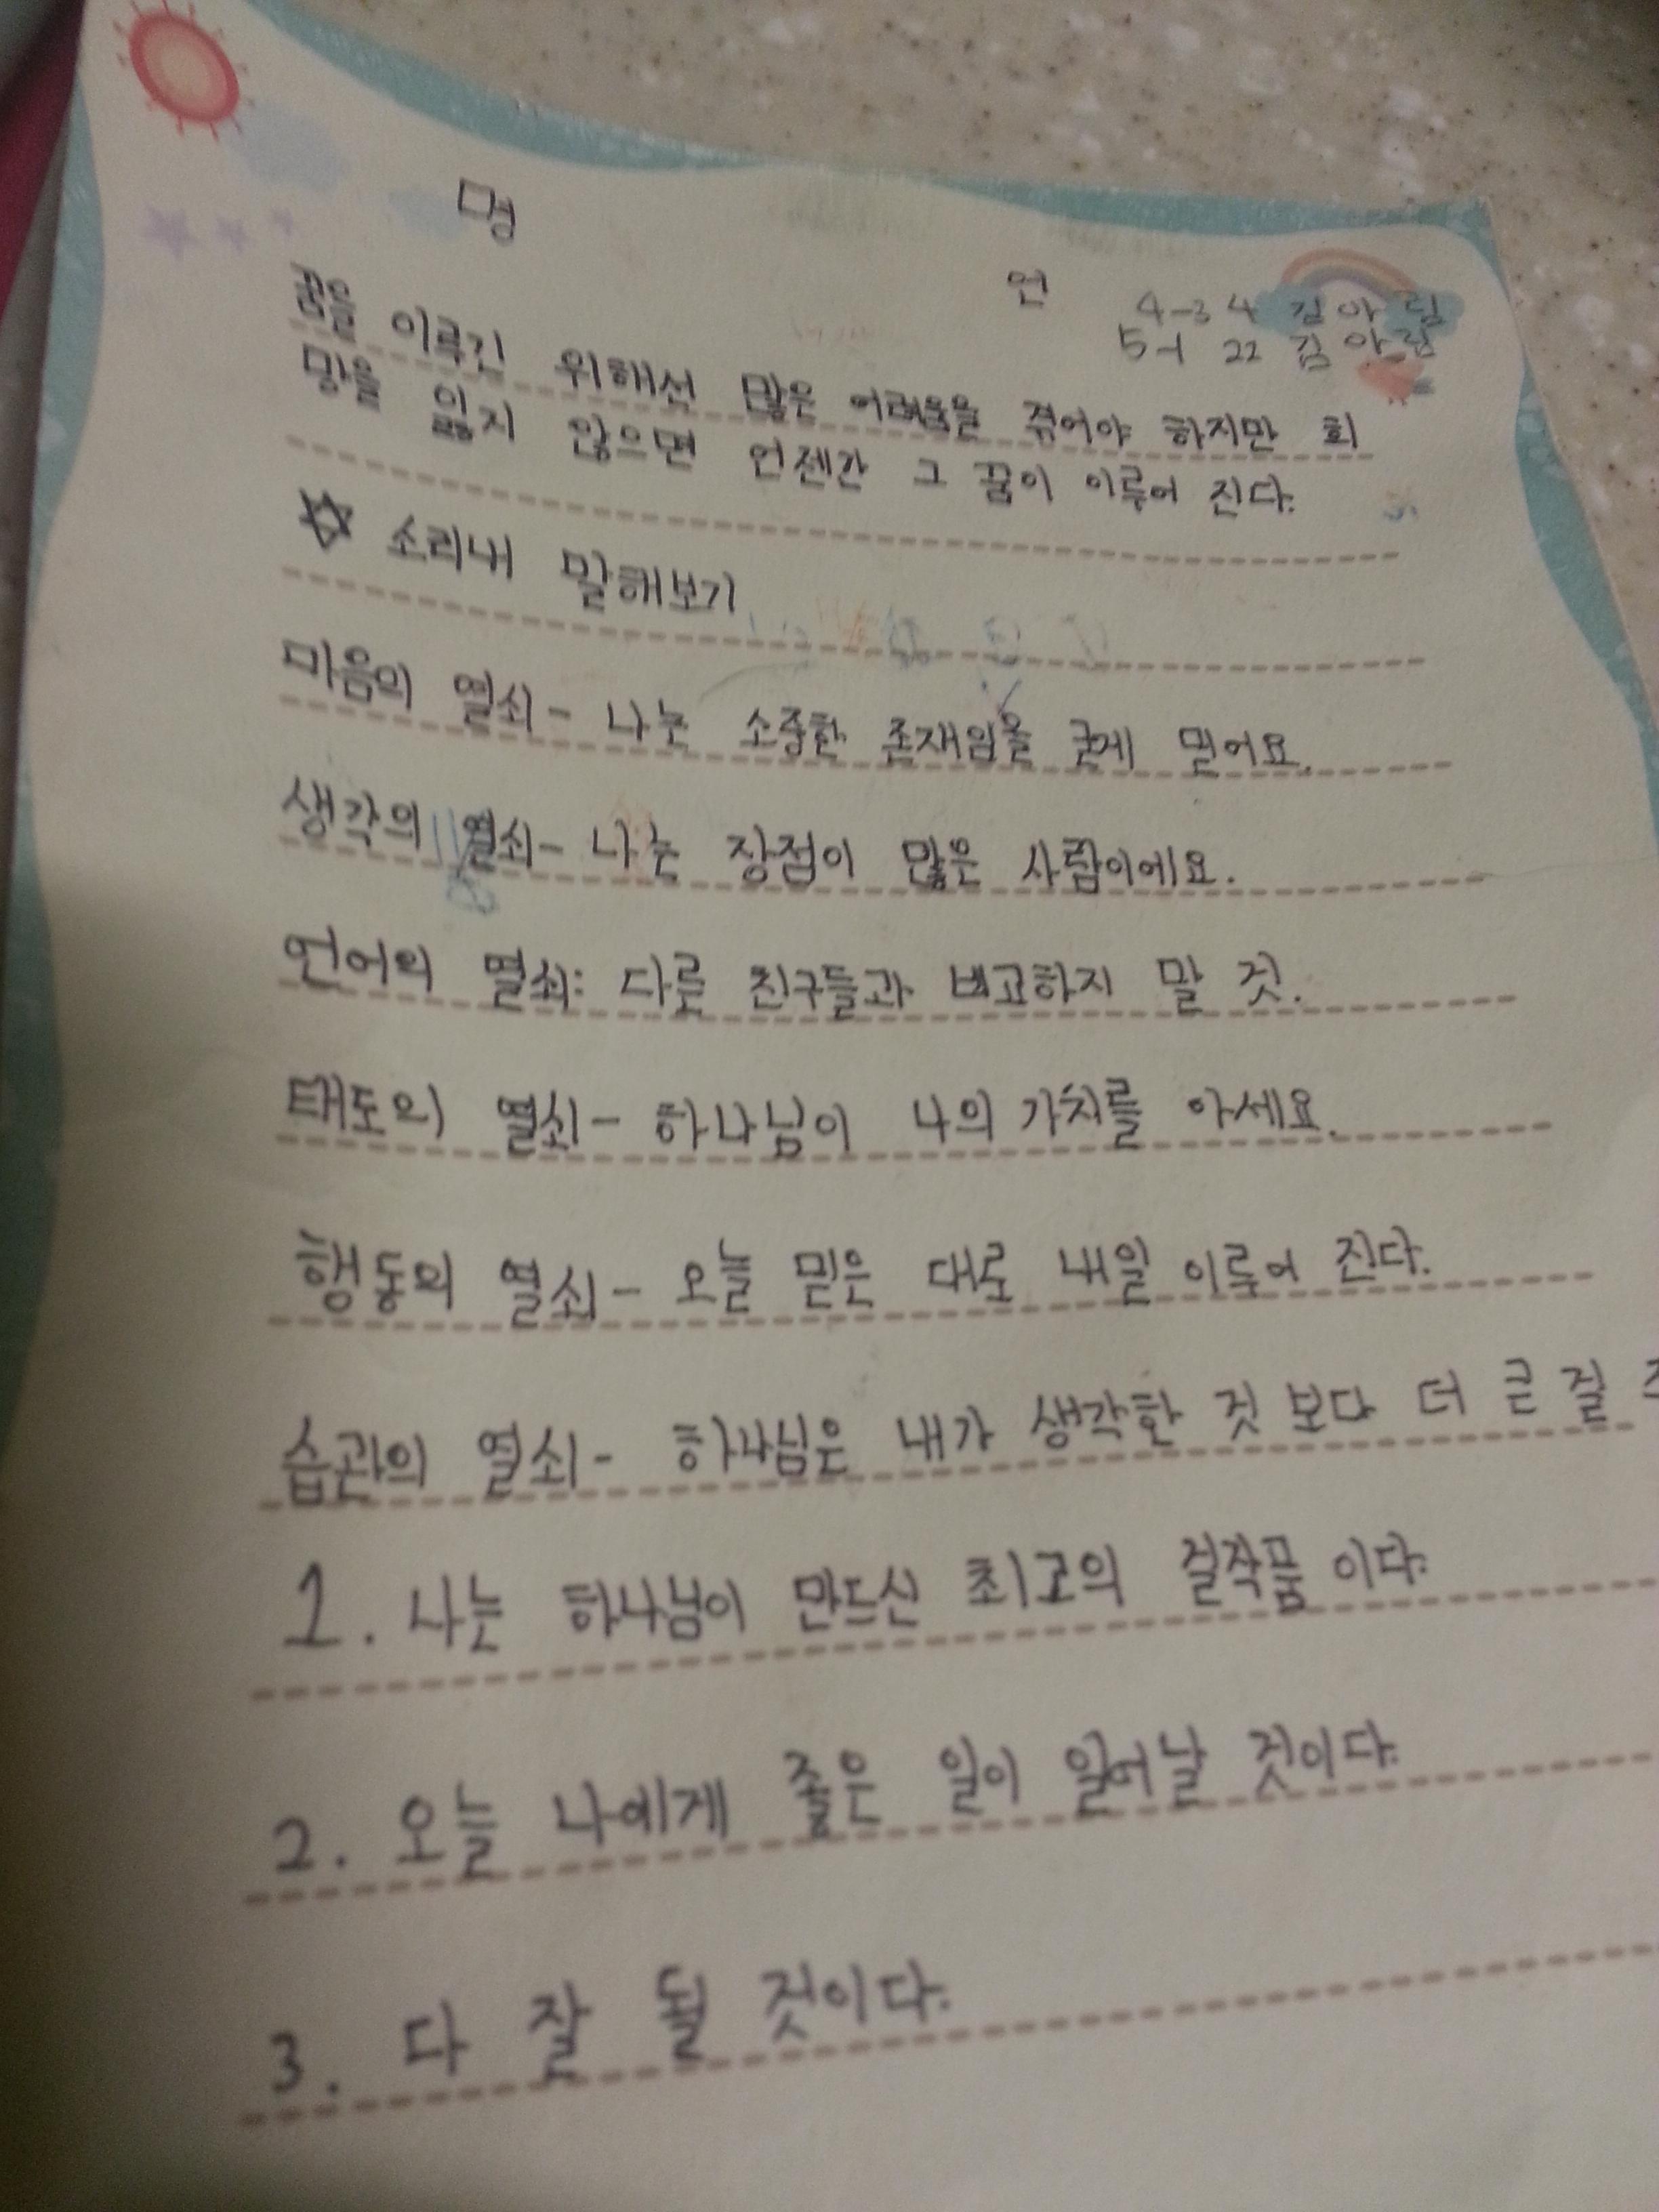 명 언
4-3 4 김아림
5-1 22 김아림
꿈을 이루긴 위해선 많은 어려움을 겪어야 하지만 희
망을 잃지 않으면 언젠간 그 꿈이 이루어 진다.
✡ 소리내 말해보기
마음의 열쇠- 나는 소중한 존재임을 굳게 믿어요.
생각의 열쇠- 나는 장점이 많은 사람이에요.
언어의 열쇠: 다른 친구들과 비교하지 말 것.
태도의 열쇠- 하나님이 나의 가치를 아세요.
행동의 열쇠- 오늘 믿은 대로 내일 이루어 진다.
습관의 열쇠- 하나님은 내가 생각한 것 보다 더 큰 걸
1. 나는 하나님이 만드신 최고의 걸작품 이다.
2. 오늘 나에게 좋은 일이 일어날 것이다.
3. 다 잘 될 것이다.